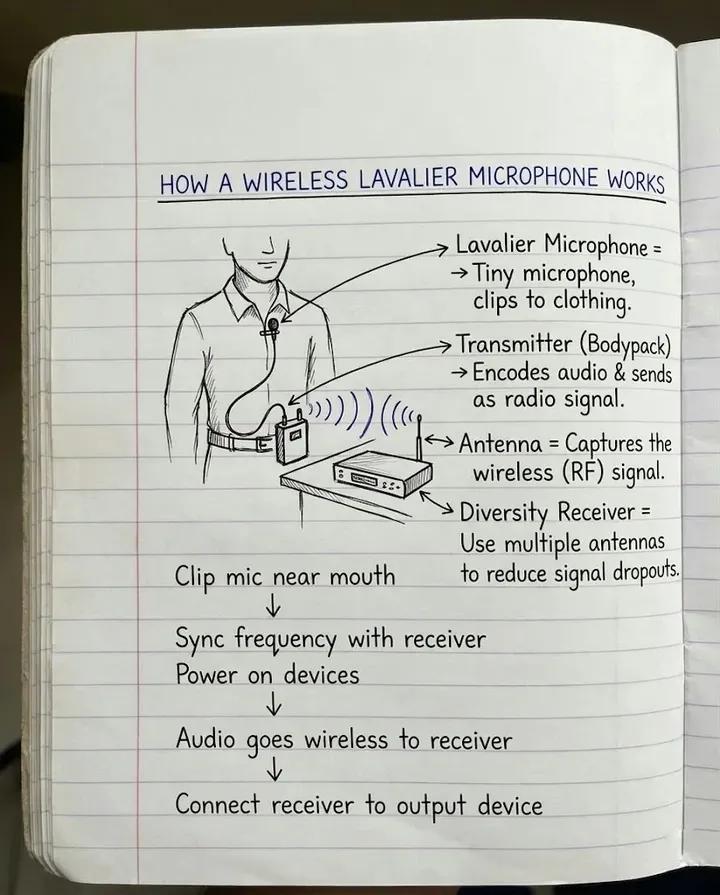 HOW A WIRELESS LAVALIER MICROPHONE WORKS
Lavalier Microphone =
→ Tiny microphone,
clips to clothing.
Transmitter (Bodypack)
→ Encodes audio & sends
as radio signal.
Antenna = Captures the
wireless (RF) signal.
Diversity Receiver =
Use multiple antennas
to reduce signal dropouts.
Clip mic near mouth
↓
Sync frequency with receiver
Power on devices
↓
Audio goes wireless to receiver
↓
Connect receiver to output device